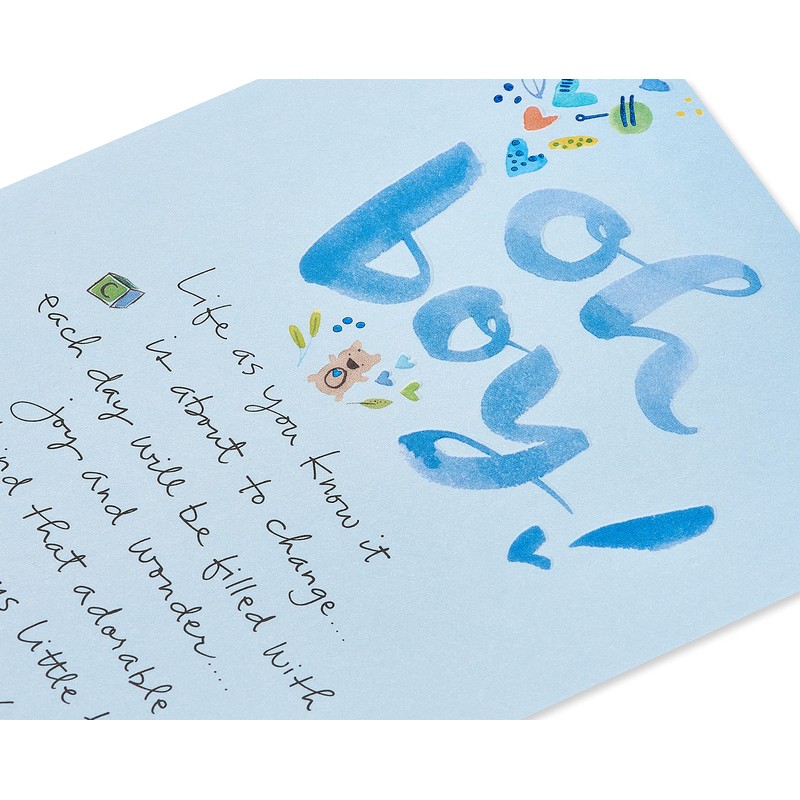 oh
boy!
Life as you know it
is about to change...
C
each day will be filled with
joy and wonder....
that adorable
little